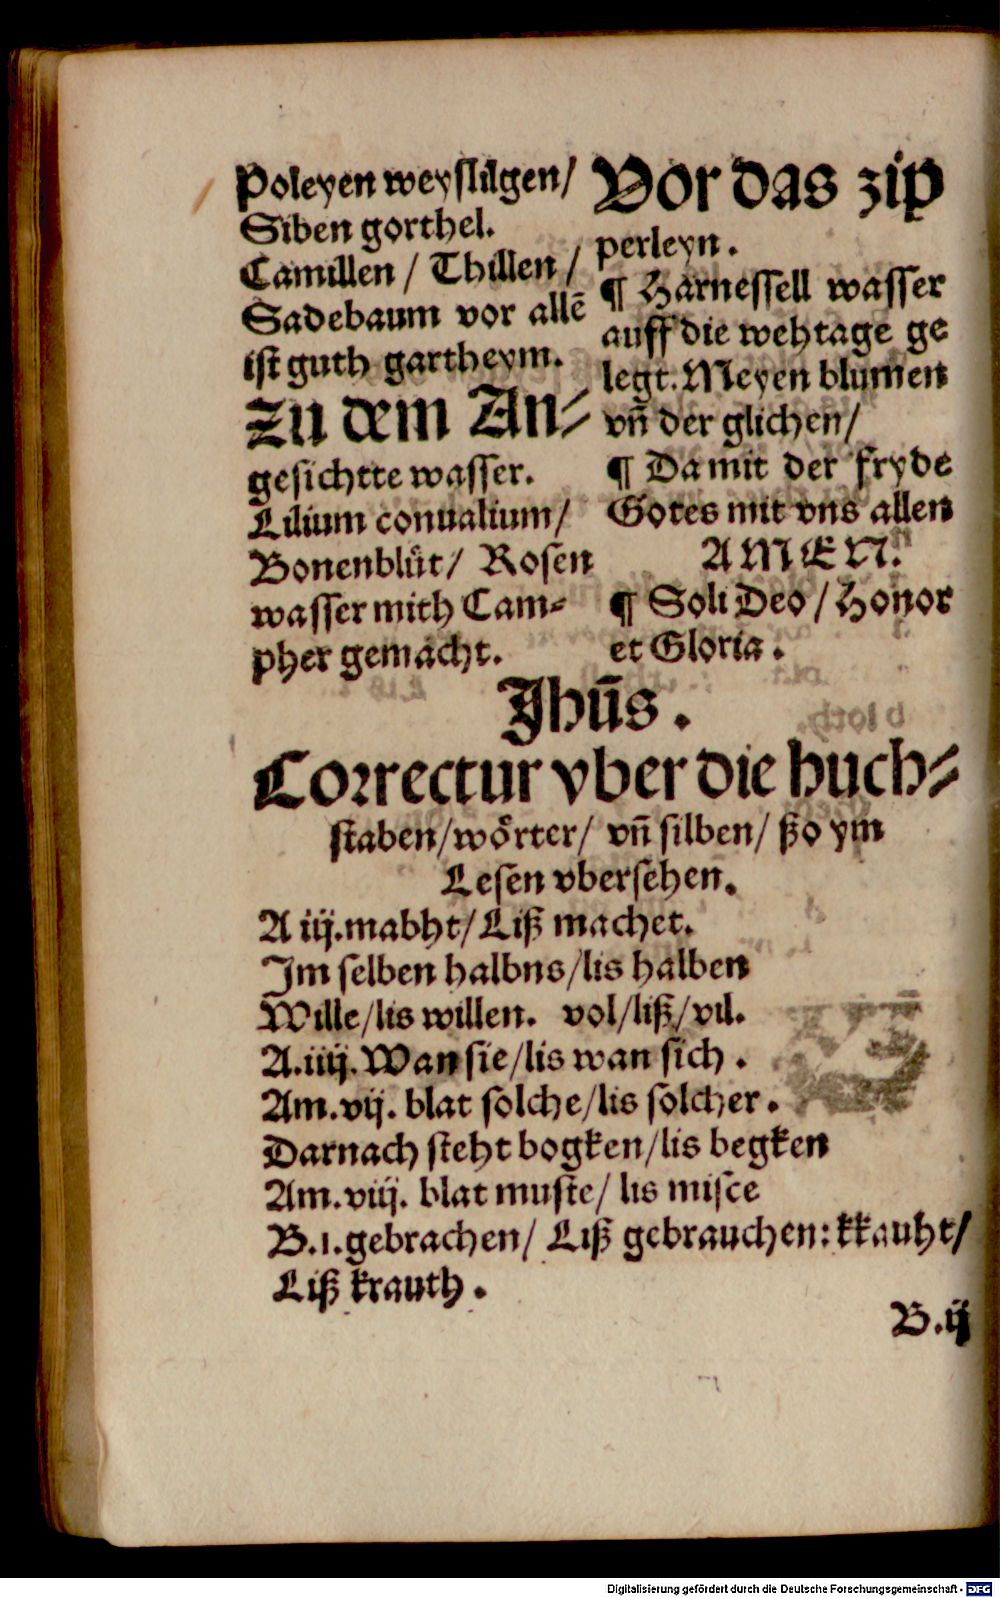 Poleyen weyslilgen/
Siben gorthel.
Camillen / Thillen /
Sadebaum vor allē
ist guth gartheym.
Zu dem An⸗
gesichtte wasser.
Lilium conualium/
Bonenblüt/ Rosen
wasser mith Cam⸗
pher gemacht.
Vor das zip
perleyn.
¶ Harnessell wasser
auff die wehtage ge
legt. Meyen blumen
vn̄ der glichen/
¶ Da mit der fryde
Gotes mit vns allen
AMEN.
¶ Soli Deo / Honor
et Gloria.
Jhūs.
Correctur vber die buch⸗
staben/wörter/ vn̄ silben/ ßo ym
Lesen vbersehen.
A iij.mabht/Liß machet.
Jm selben halbns/lis halben
Wille/lis willen. vol/liß/vil.
A.iiij.Wan sie/lis wan sich.
Am.vij. blat solche/lis solcher.
Darnach steht bogken/lis begken
Am.viij. blat muste/ lis misce
B.i.gebrachen/ Liß gebrauchen: kkauht/
Liß krauth.
B.ij
Digitalisierung gefördert durch die Deutsche Forschungsgemeinschaft - DFG